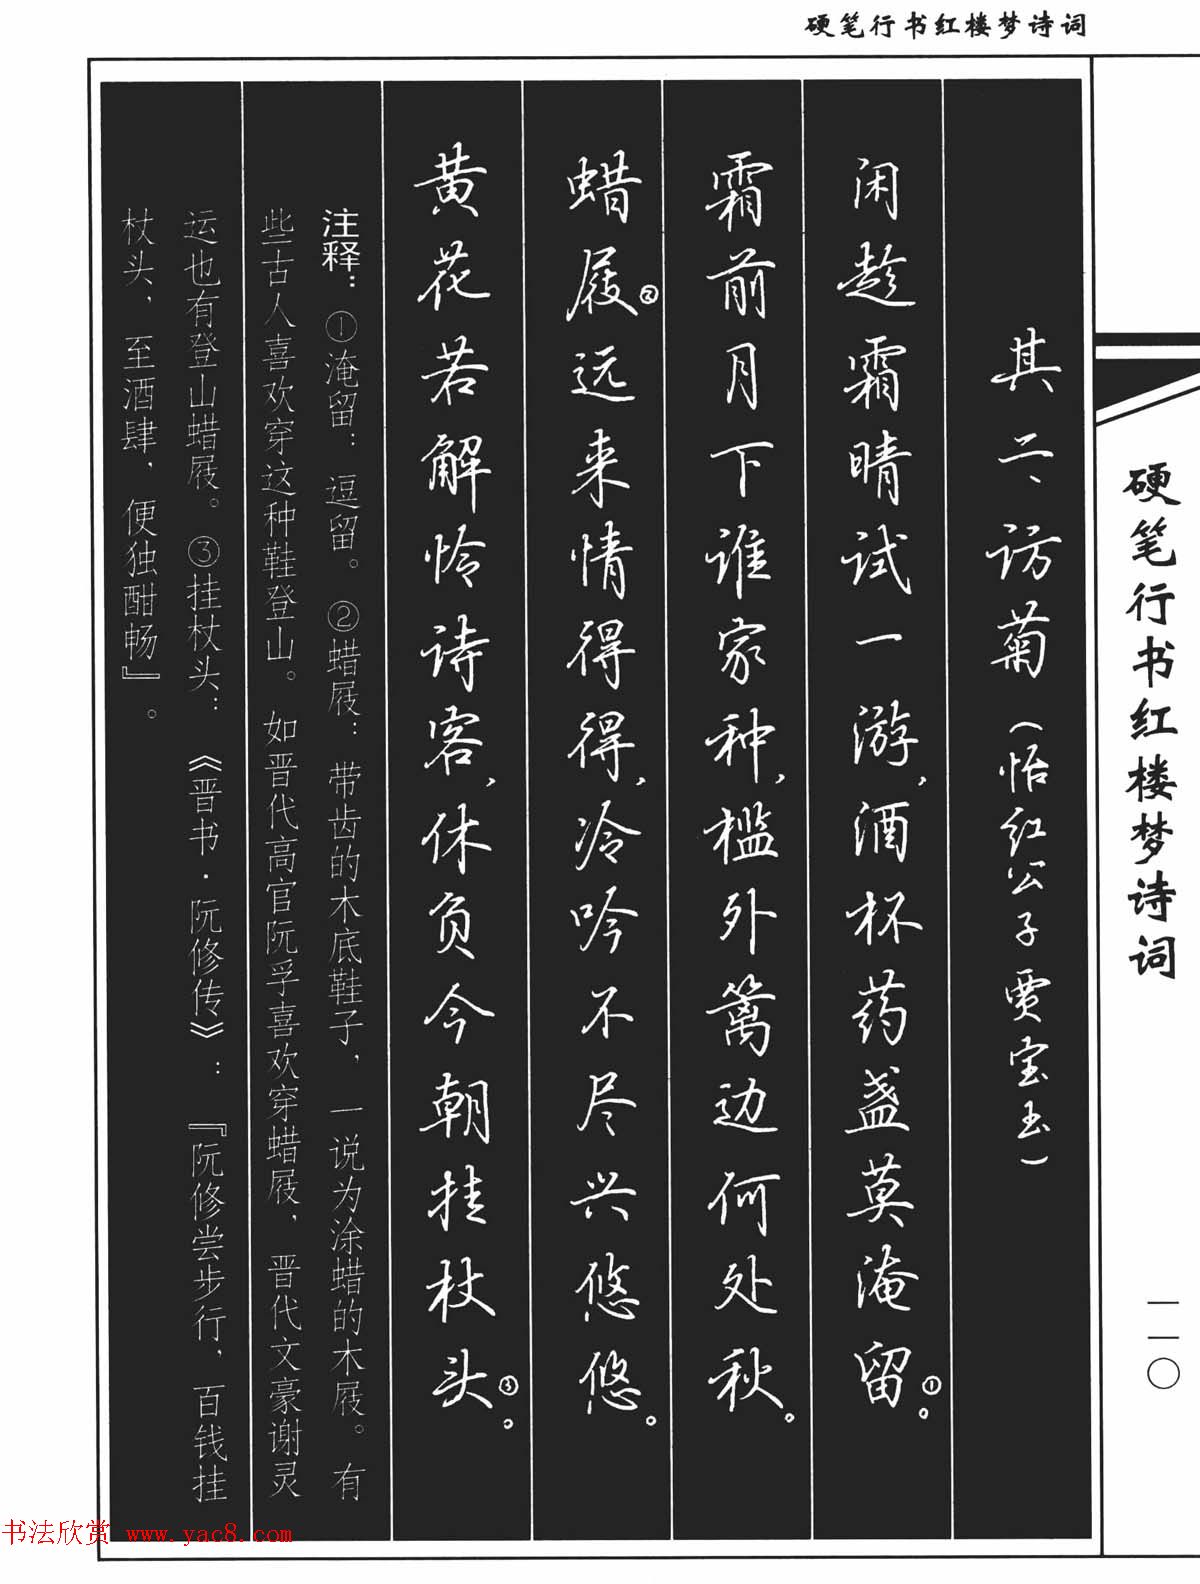 硬笔行书红楼梦诗词
硬笔行书红楼梦诗词
一一〇
其二 访菊（怡红公子 贾宝玉）
闲趁霜晴试一游，酒杯药盏莫淹留①。
霜前月下谁家种，槛外篱边何处秋。
蜡屐②远来情得得，冷吟不尽兴悠悠。
黄花若解怜诗客，休负今朝挂杖头③。
注释：①淹留：逗留。②蜡屐：带齿的木底鞋子，一说为涂蜡的木屐。有
些古人喜欢穿这种鞋登山。如晋代高官阮孚喜欢穿蜡屐，晋代文豪谢灵
运也有登山蜡屐。③挂杖头：《晋书·阮修传》：『阮修尝步行，百钱挂
杖头，至酒肆，便独酣畅』。
书法欣赏 www.yac8.com